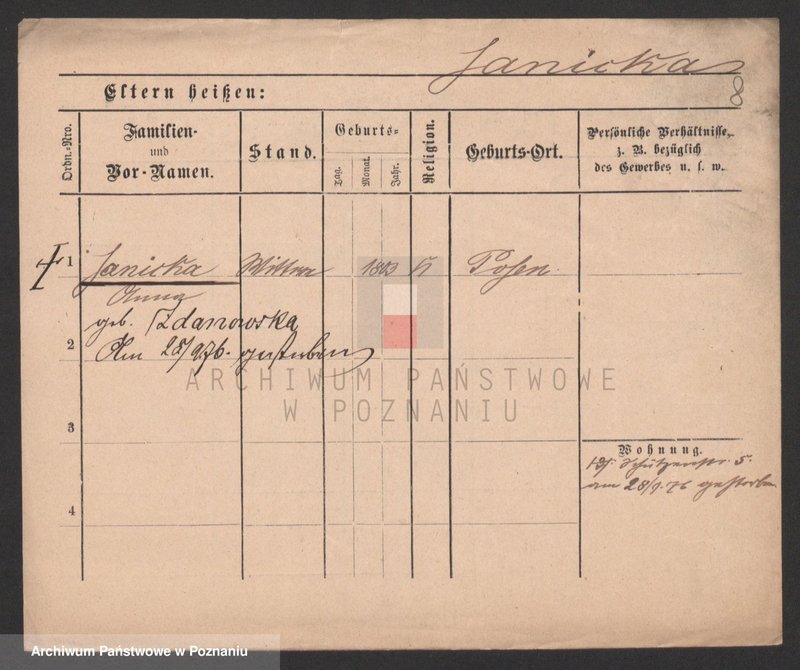 Janicka
8
Eltern heißen:
Ordn.-Nro.
Familien-
und
Vor-Namen.
Stand.
Geburts-
Tag.
Monat.
Jahr.
Religion.
Geburts-Ort.
Persönliche Verhältnisse,
z. B. bezüglich
des Gewerbes u. s. w.
1 Janicka Wittwe 1803 k Posen
Anna
geb. Zdanowska
2 Am 28/9.76. gestorben
ARCHIWUM PAŃSTWOWE
W POZNANIU
3
Wohnung.
Schützenstr. 5.
am 28/9.76 gestorben
4
Archiwum Państwowe w Poznaniu